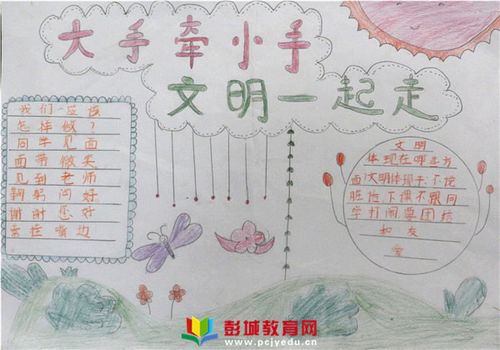 大手牵小手
文明一起走
我们应该
怎样做?
同学见面
面带微笑
见到老师
鞠躬问好
谢谢您好
云挂嘴边
文明
体现在
面文明体现于:不说
脏话下课不跟同
学打闹要团结
和友
爱
彭城教育网
www.pcjyedu.cn